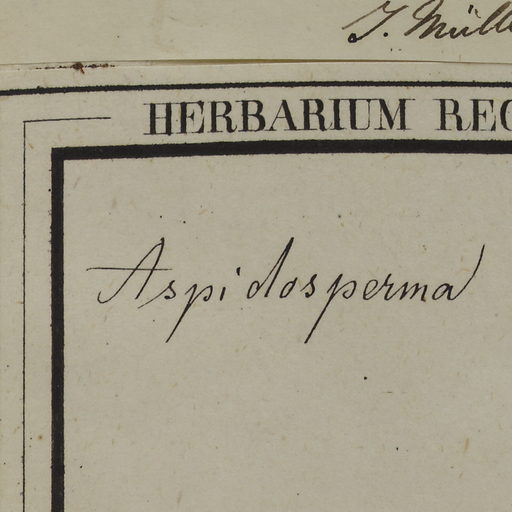 J. Müll
HERBARIUM REG
Aspidosperma